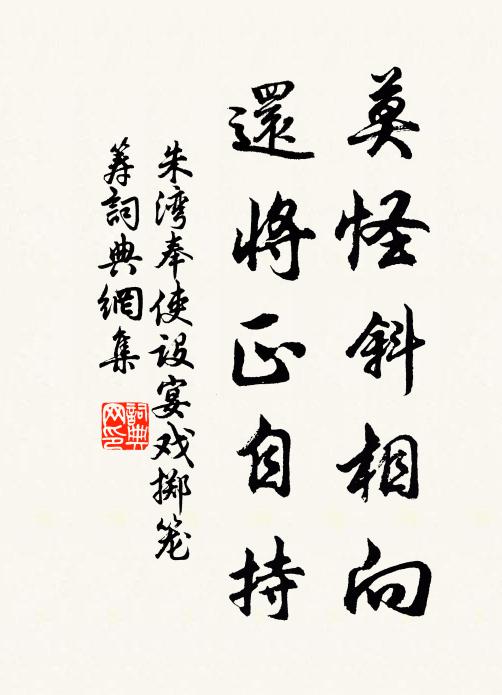 莫怪斜相向
還將正自持
朱湾奉使设宴戏掷笼
筹詞典網集
詞典网印